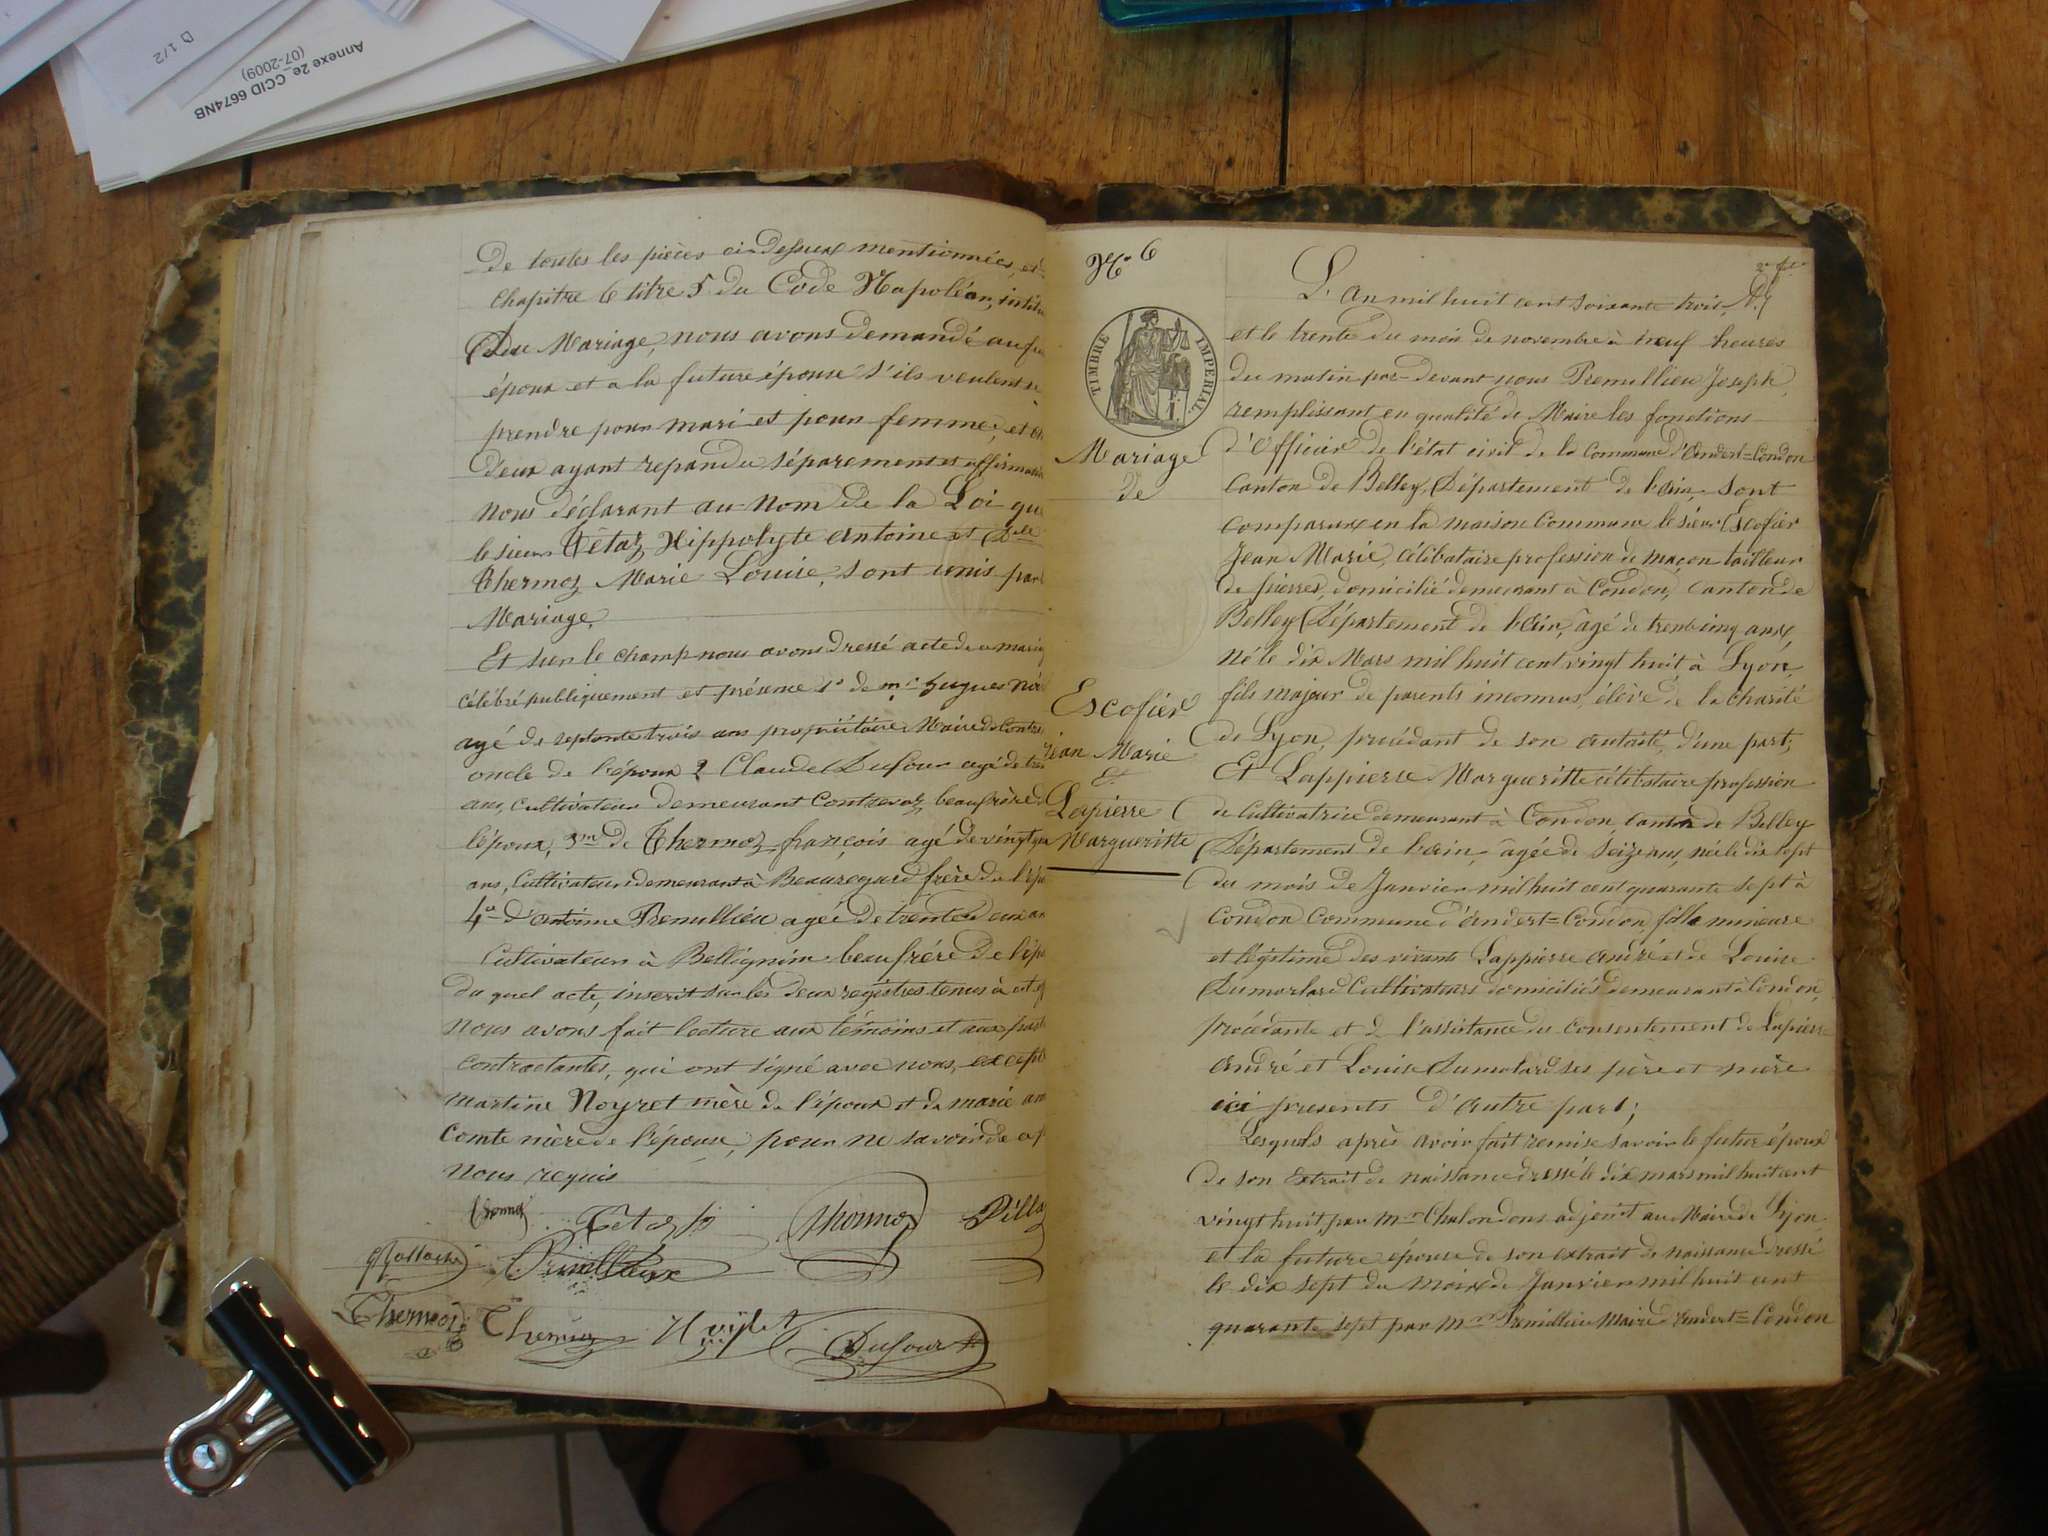 D 1/2
Annexe 2e_CCID 6674NB
(07-2009)
de toutes les pièces ci-dessus mentionnées, et
chapitre 6 titre 5 du Code Napoléon, intit
Du Mariage, nous avons demandé au fu
époux et a la future épouse s'ils veulent se
prendre pour mari et pour femme, et
deux ayant repondu séparement et affirmati
nous déclarant au nom de la Loi qu
le sieur Tétaz Hippolyte Antoine et Dlle
Thermoz Marie Louise, sont unis par
Mariage.
Et sur le champ nous avons dressé acte de ce mariag
célébré publiquement et présence 1° de mr hugues
agé de septante trois ans propriétaire Maire de Contre
oncle de l'époux 2 Claude Dufour agé de tre
ans, cultivateur demeurant Contrevoz beaufrère d
l'époux, 3m de Thermoz françois agé de vingt qua
ans, Cultivateur demeurant à Beauregard frère de l'épo
4° d'antoine Premillieu agée de trente deux an
Cultivateur à Bellignin beaufrére de l'épo
du quel acte, inscrit sur les deux registres tenus à cet
nous avons fait lecture aux témoins et aux part
contractantes, qui ont signé avec nous, excepté
martine Noyret mère de l'époux et de marie an
Comte mère de l'épouse, pour ne savoir de
nous requis
Thermoz
Dufour
N° 6
L'an mil huit cent soixante trois,
et le trente du mois de novembre à neuf heures
du matin par-devant nous Premillieu Joseph,
remplissant en qualité de Maire les fonctions
TIMBRE IMPERIAL
Mariage
de
d'Officier de l'état civil de la commune d'Andert=Condon
Canton de Belley, Département de l'ain, sont
comparus en la maison Commune le sieur Escofier
Jean Marie, célibataire profession de maçon tailleur
de pierres, domicilié demeurant à Condon, canton de
Belley Département de l'ain, agé de trente cinq ans,
né le dix Mars mil huit cent vingt huit à Lyon,
fils majour de parents inconnus, élève de la charité
de Lyon, procédant de son autorité, d'une part;
Escofier
Jean Marie
&
Lapierre
Margueritte
Et Lappierre Margueritte célibataire profession
de Cultivatrice demeurant à Condon, Canton de Belley
Département de l'ain, agée de seize ans, née le dix sept
du mois de Janvier mil huit cent quarante sept à
Condon Commune d'Andert=Condon, fille mineure
et légitime des vivants Lappierre andré et de Louise
Dumolard Cultivateurs domiciliés demeurant à Condon,
procédante et de l'assistance du consentement de Lapierre
andré et Louise Dumolard ses père et mère
ici presents d'autre part;
Lesquels après avoir fait remise savoir le futur époux
de son extrait de naissance dressé le dix mars mil huit cent
vingt huit, par Mr Chalondons adjoint au Maire de Lyon
et la future épouse de son extrait de naissance dressé
le dix sept du mois de Janvier mil huit cent
quarante sept par Mr Premillieu Maire d'Andert=Condon